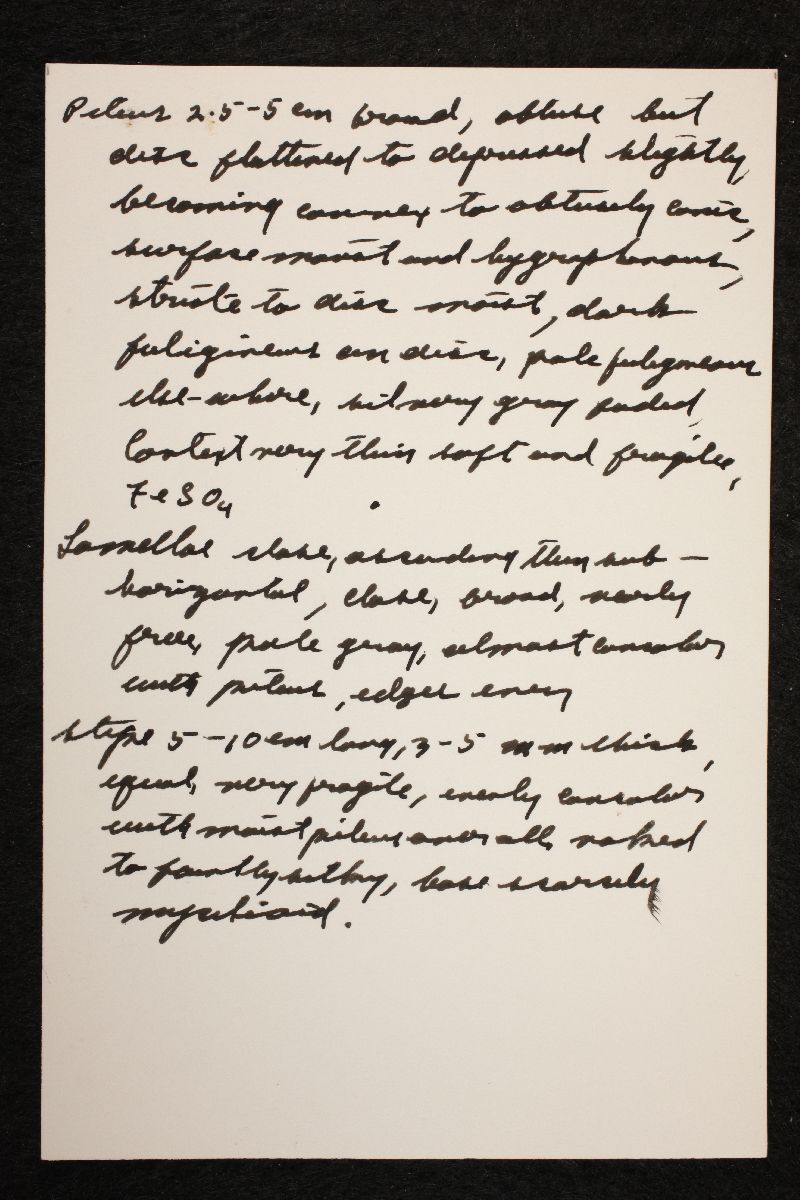 Pileus 2.5-5 cm broad, obtuse but
disc flattened to depressed slightly,
becoming convex to obtusely conic,
surface moist and hygrophanous,
striate to disc moist, dark
fuligineus on disc, pale fuligineous
else-where, silvery gray faded,
Context very thin soft and fragile,
FeSO4
Lamellae close, ascending then sub-
horizontal, close, broad, nearly
free, pale gray, almost concolor
with pileus, edges even
Stipe 5-10 cm long, 3-5 mm thick,
equal, very fragile, evenly concolor
with moist pileus over all, naked
to faintly silky, base scarcely
mycelioid.